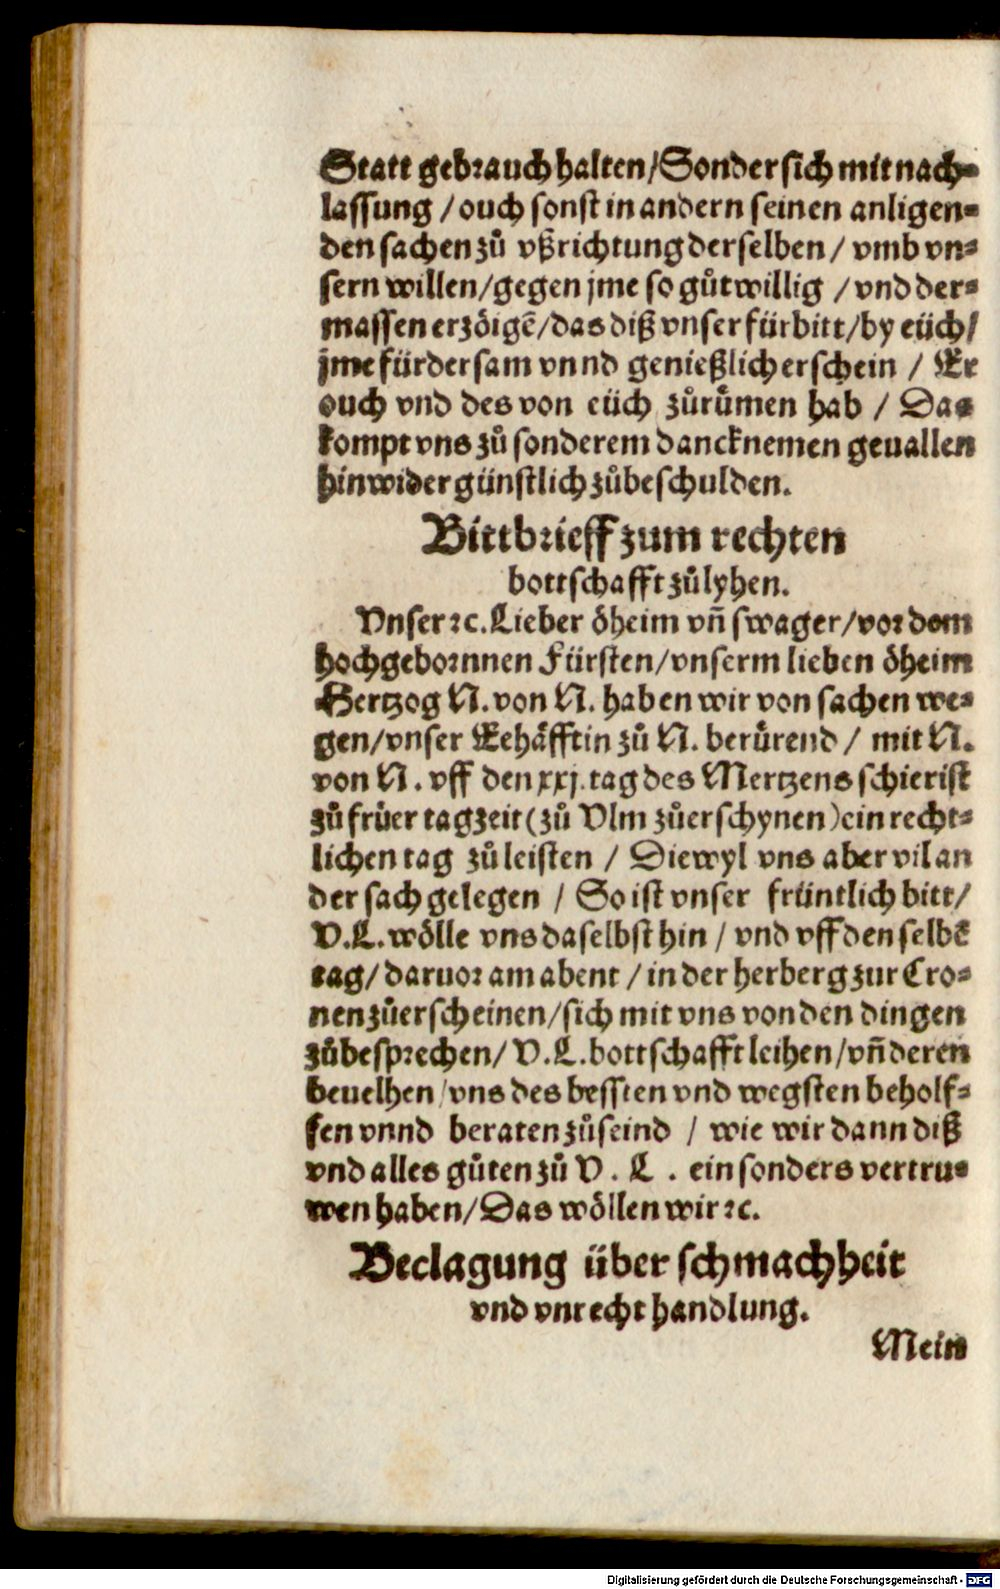 Statt gebrauch halten/Sonder sich mit nach⸗
lassung /ouch sonst in andern seinen anligen⸗
den sachen zů vßrichtung derselben / vmb vn⸗
sern willen/gegen jme so gůtwillig /vnd der⸗
massen erzöigē/das diß vnser fürbitt/by eüch/
jme fürdersam vnnd genießlich erschein / Er
ouch vnd des von eüch zůrůmen hab / Das
kompt vns zů sonderem dancknemen geuallen
hinwider günstlich zůbeschulden.
Bittbrieff zum rechten
bottschafft zůlyhen.
Vnser ꝛc. Lieber öheim vñ swager/vor dem
hochgebornnen Fürsten/vnserm lieben öheim
Hertzog N. von N. haben wir von sachen we⸗
gen/vnser Eehäfftin zů N. berůrend / mit N.
von N. vff den xxj. tag des Mertzens schierist
zů früer tagzeit (zů Vlm zůerschynen) ein recht⸗
lichen tag zů leisten / Diewyl vns aber vil an
der sach gelegen / So ist vnser früntlich bitt/
V.L. wölle vns daselbst hin / vnd vff den selbē
tag/ daruor am abent / in der herberg zur Cro⸗
nen zůerscheinen/sich mit vns von den dingen
zůbesprechen/ V.L. bottschafft leihen/vñ deren
beuelhen/vns des bessten vnd wegsten beholf⸗
fen vnnd beraten zůseind / wie wir dann diß
vnd alles gůten zů V. L. ein sonders vertru⸗
wen haben/Das wöllen wir ꝛc.
Beclagung über schmachheit
vnd vnrecht handlung.
Mein
Digitalisierung gefördert durch die Deutsche Forschungsgemeinschaft - DFG